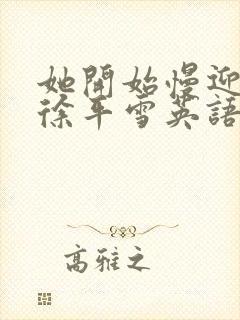 她開始慢迎
徐平雪英語
高雅之